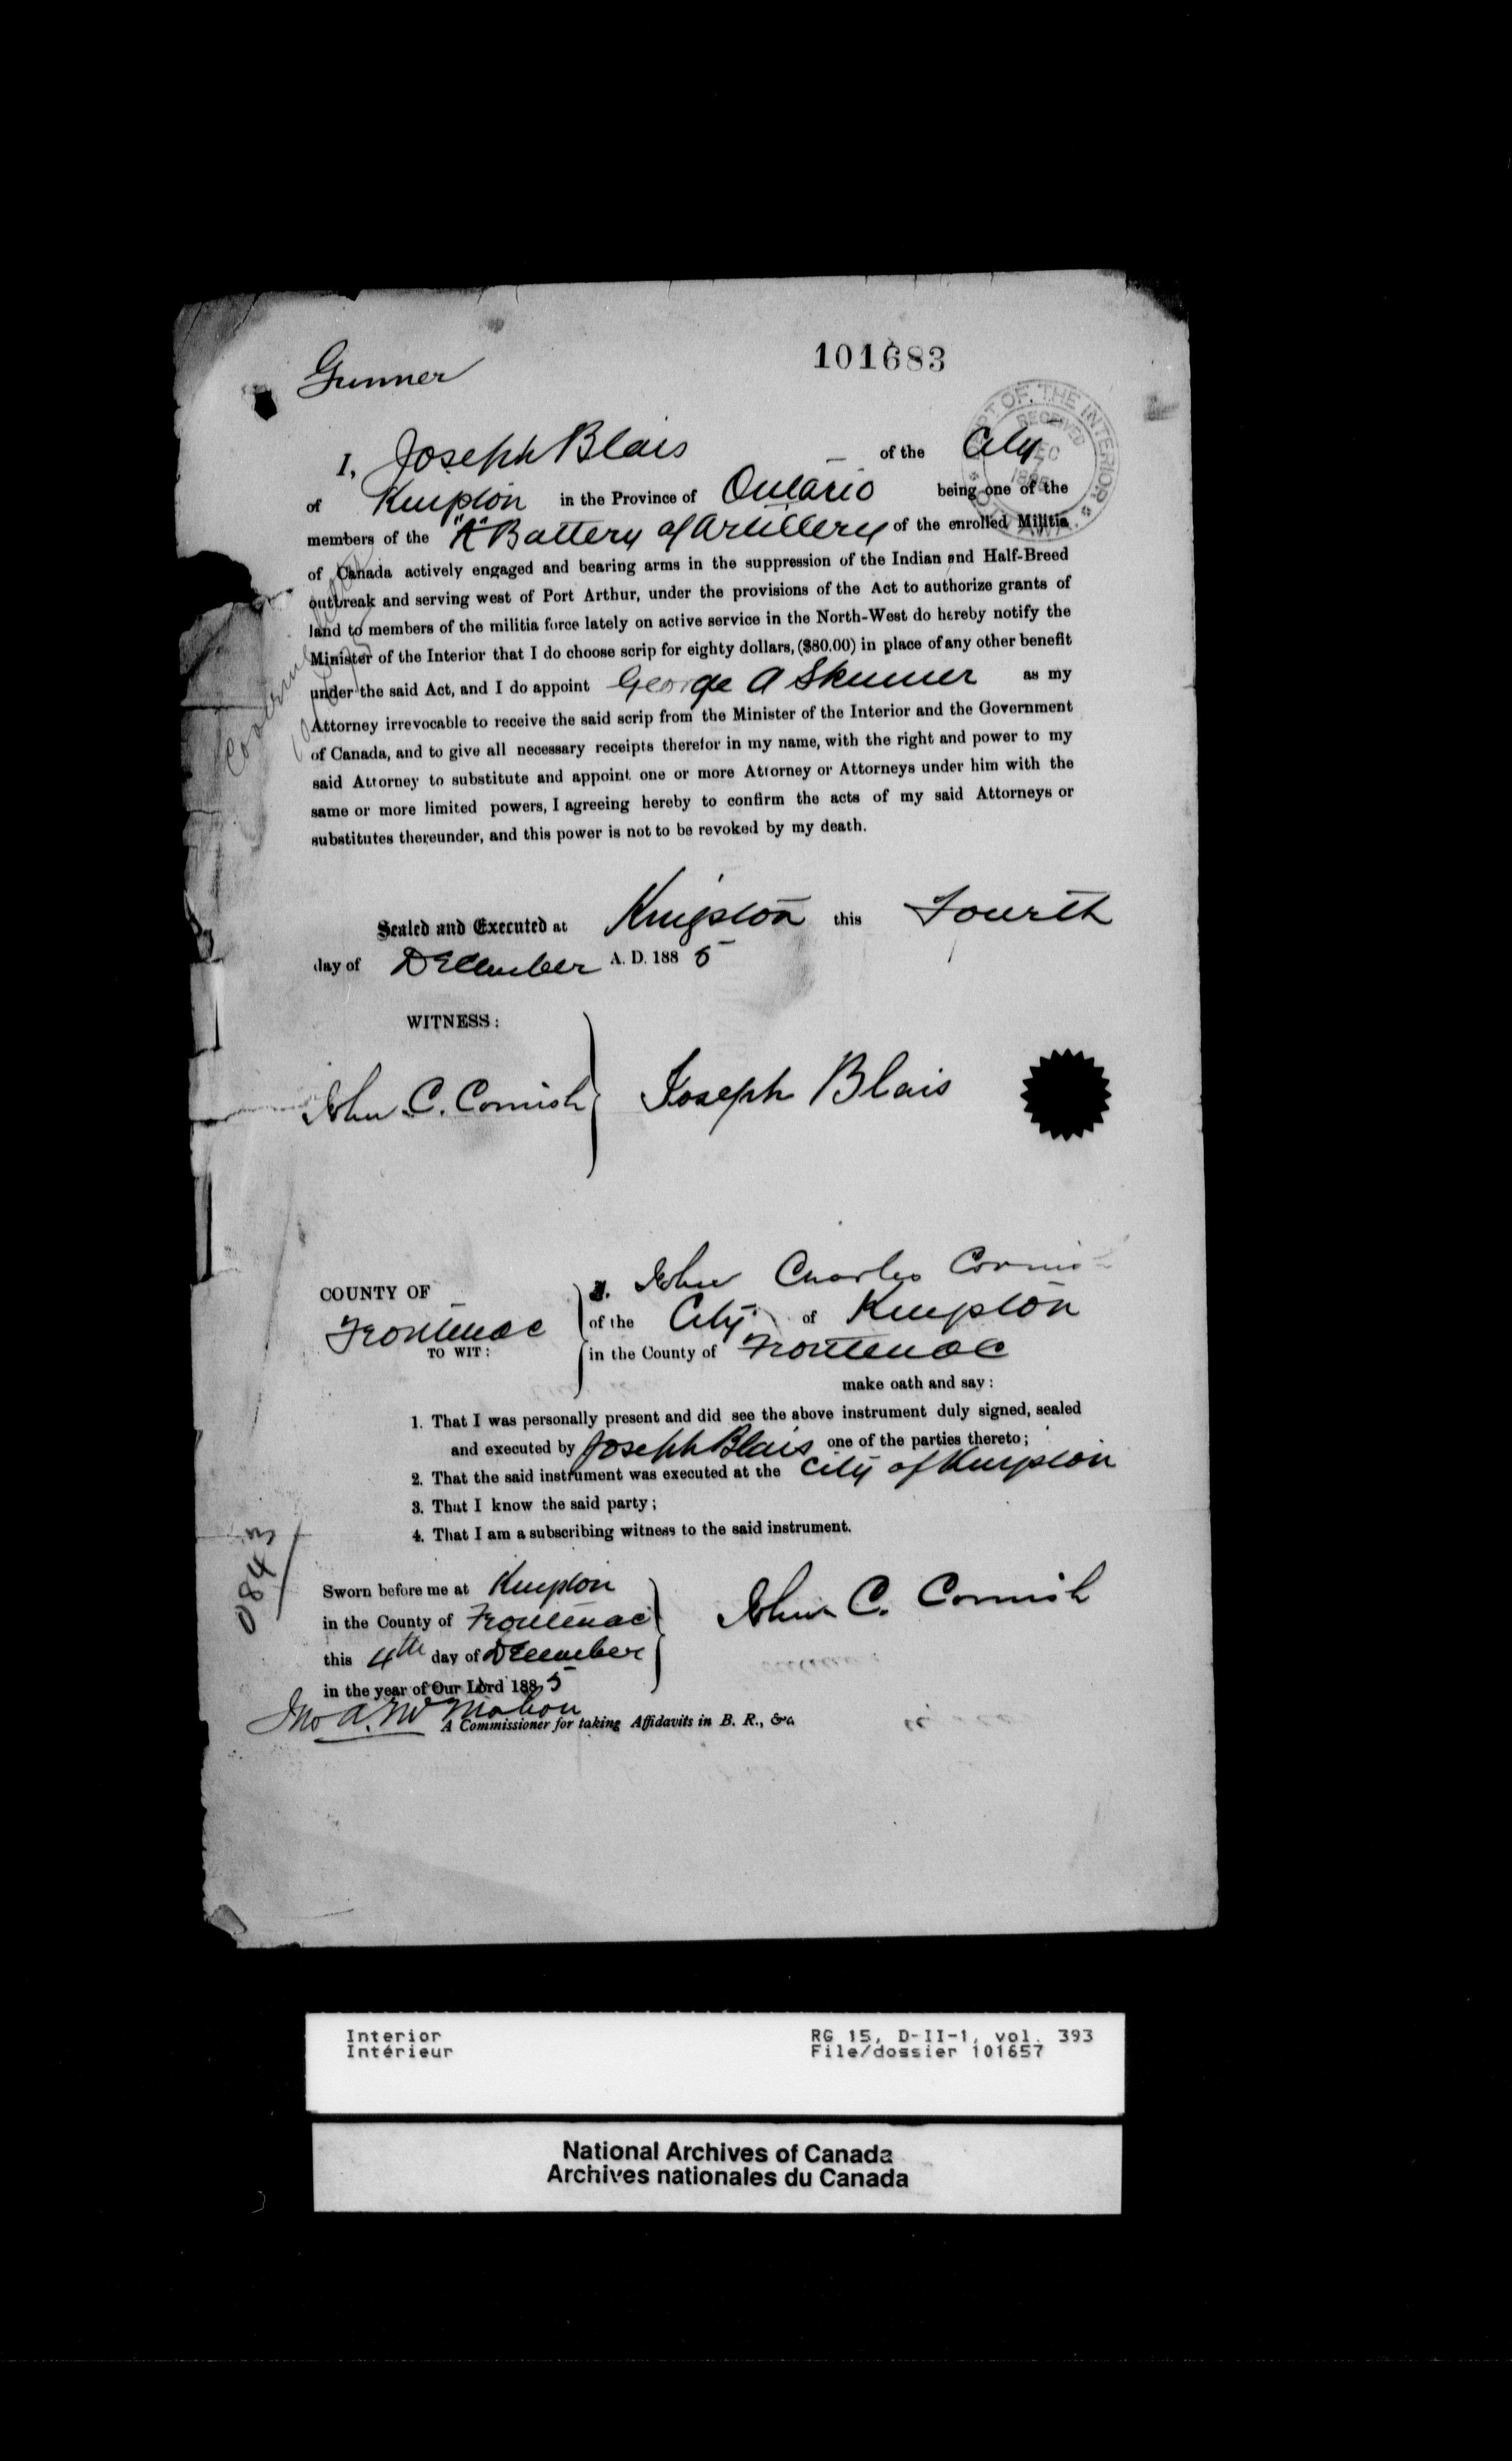 Gunner
101683
DEPT OF THE INTERIOR
RECEIVED
DEC
1885
I, Joseph Blais of the City
of Kingston in the Province of Ontario being one of the
members of the "A" Battery of Artillery of the enrolled Militia
of Canada actively engaged and bearing arms in the suppression of the Indian and Half-Breed
outbreak and serving west of Port Arthur, under the provisions of the Act to authorize grants of
land to members of the militia force lately on active service in the North-West do hereby notify the
Minister of the Interior that I do choose scrip for eighty dollars, ($80.00) in place of any other benefit
under the said Act, and I do appoint George A Skinner as my
Attorney irrevocable to receive the said scrip from the Minister of the Interior and the Government
of Canada, and to give all necessary receipts therefor in my name, with the right and power to my
said Attorney to substitute and appoint one or more Attorney or Attorneys under him with the
same or more limited powers, I agreeing hereby to confirm the acts of my said Attorneys or
substitutes thereunder, and this power is not to be revoked by my death.
Sealed and Executed at Kingston this Fourth
day of December A. D. 1885
WITNESS:
John C. Cornish Joseph Blais
COUNTY OF
Frontenac
TO WIT:
I. John Charles Cornish
of the City of Kingston
in the County of Frontenac
make oath and say:
1. That I was personally present and did see the above instrument duly signed, sealed
and executed by Joseph Blais one of the parties thereto;
2. That the said instrument was executed at the City of Kingston
3. That I know the said party;
4. That I am a subscribing witness to the said instrument.
0843
Sworn before me at Kingston
in the County of Frontenac
this 4th day of December
in the year of Our Lord 1885
John C. Cornish
Jno A. McMahon
A Commissioner for taking Affidavits in B. R., &c.
Interior RG 15, D-II-1, vol. 393
Intérieur File/dossier 101657
National Archives of Canada
Archives nationales du Canada